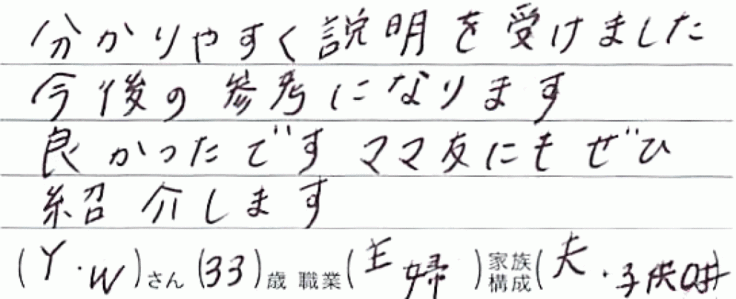 分かりやすく説明を受けました
今後の参考になります
良かったです ママ友にもぜひ
紹介します
(Y・W)さん (33)歳 職業(主婦)家族構成(夫・子供